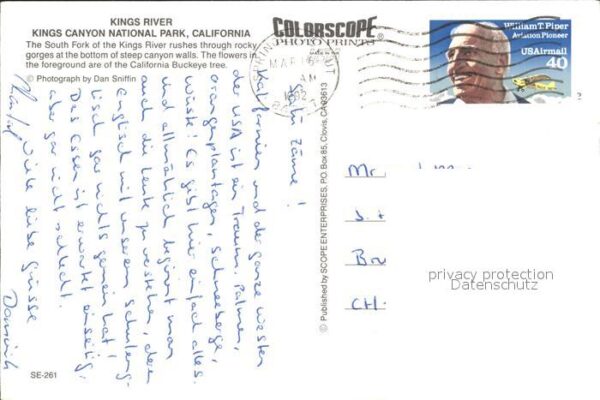 KINGS RIVER
KINGS CANYON NATIONAL PARK, CALIFORNIA
The South Fork of the Kings River rushes through rocky
gorges at the bottom of steep canyon walls. The flowers in
the foreground are of the California Buckeye tree.
© Photograph by Dan Sniffin
COLORSCOPE
PHOTO PRINTS
William T. Piper
Aviation Pioneer
USAirmail
40
MAR
AM
1992
Kalifornien und der ganze Westen
der USA ist ein Traum. Palmen,
orangenplantagen, schneeberge,
wüste! Es gibt hier einfach alles.
und allmählich beginnt man
auch die Leute zu verstehen, deren
Englisch mit unserem schuleng-
lisch gar nichts gemein hat!
Das Essen ist erwartet einseitig,
aber gar nicht schlecht.
viele liebe Grüsse
Dominik
© Published by SCOPE ENTERPRISES, P.O. Box 85, Clovis, CA 93613
Mr
CH-
privacy protection
Datenschutz
SE-261